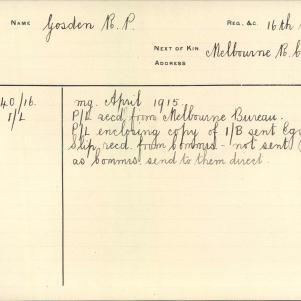 NAME Gosden R. P. REG. &C. 16th
NEXT OF KIN Melbourne R.C
ADDRESS
40/16. mg. April 1915
I/L P/L recd. from Melbourne Bureau.
P/L enclosing copy of I/B sent
Slip recd. from Commrs - not sent
as Commrs. send to them direct.